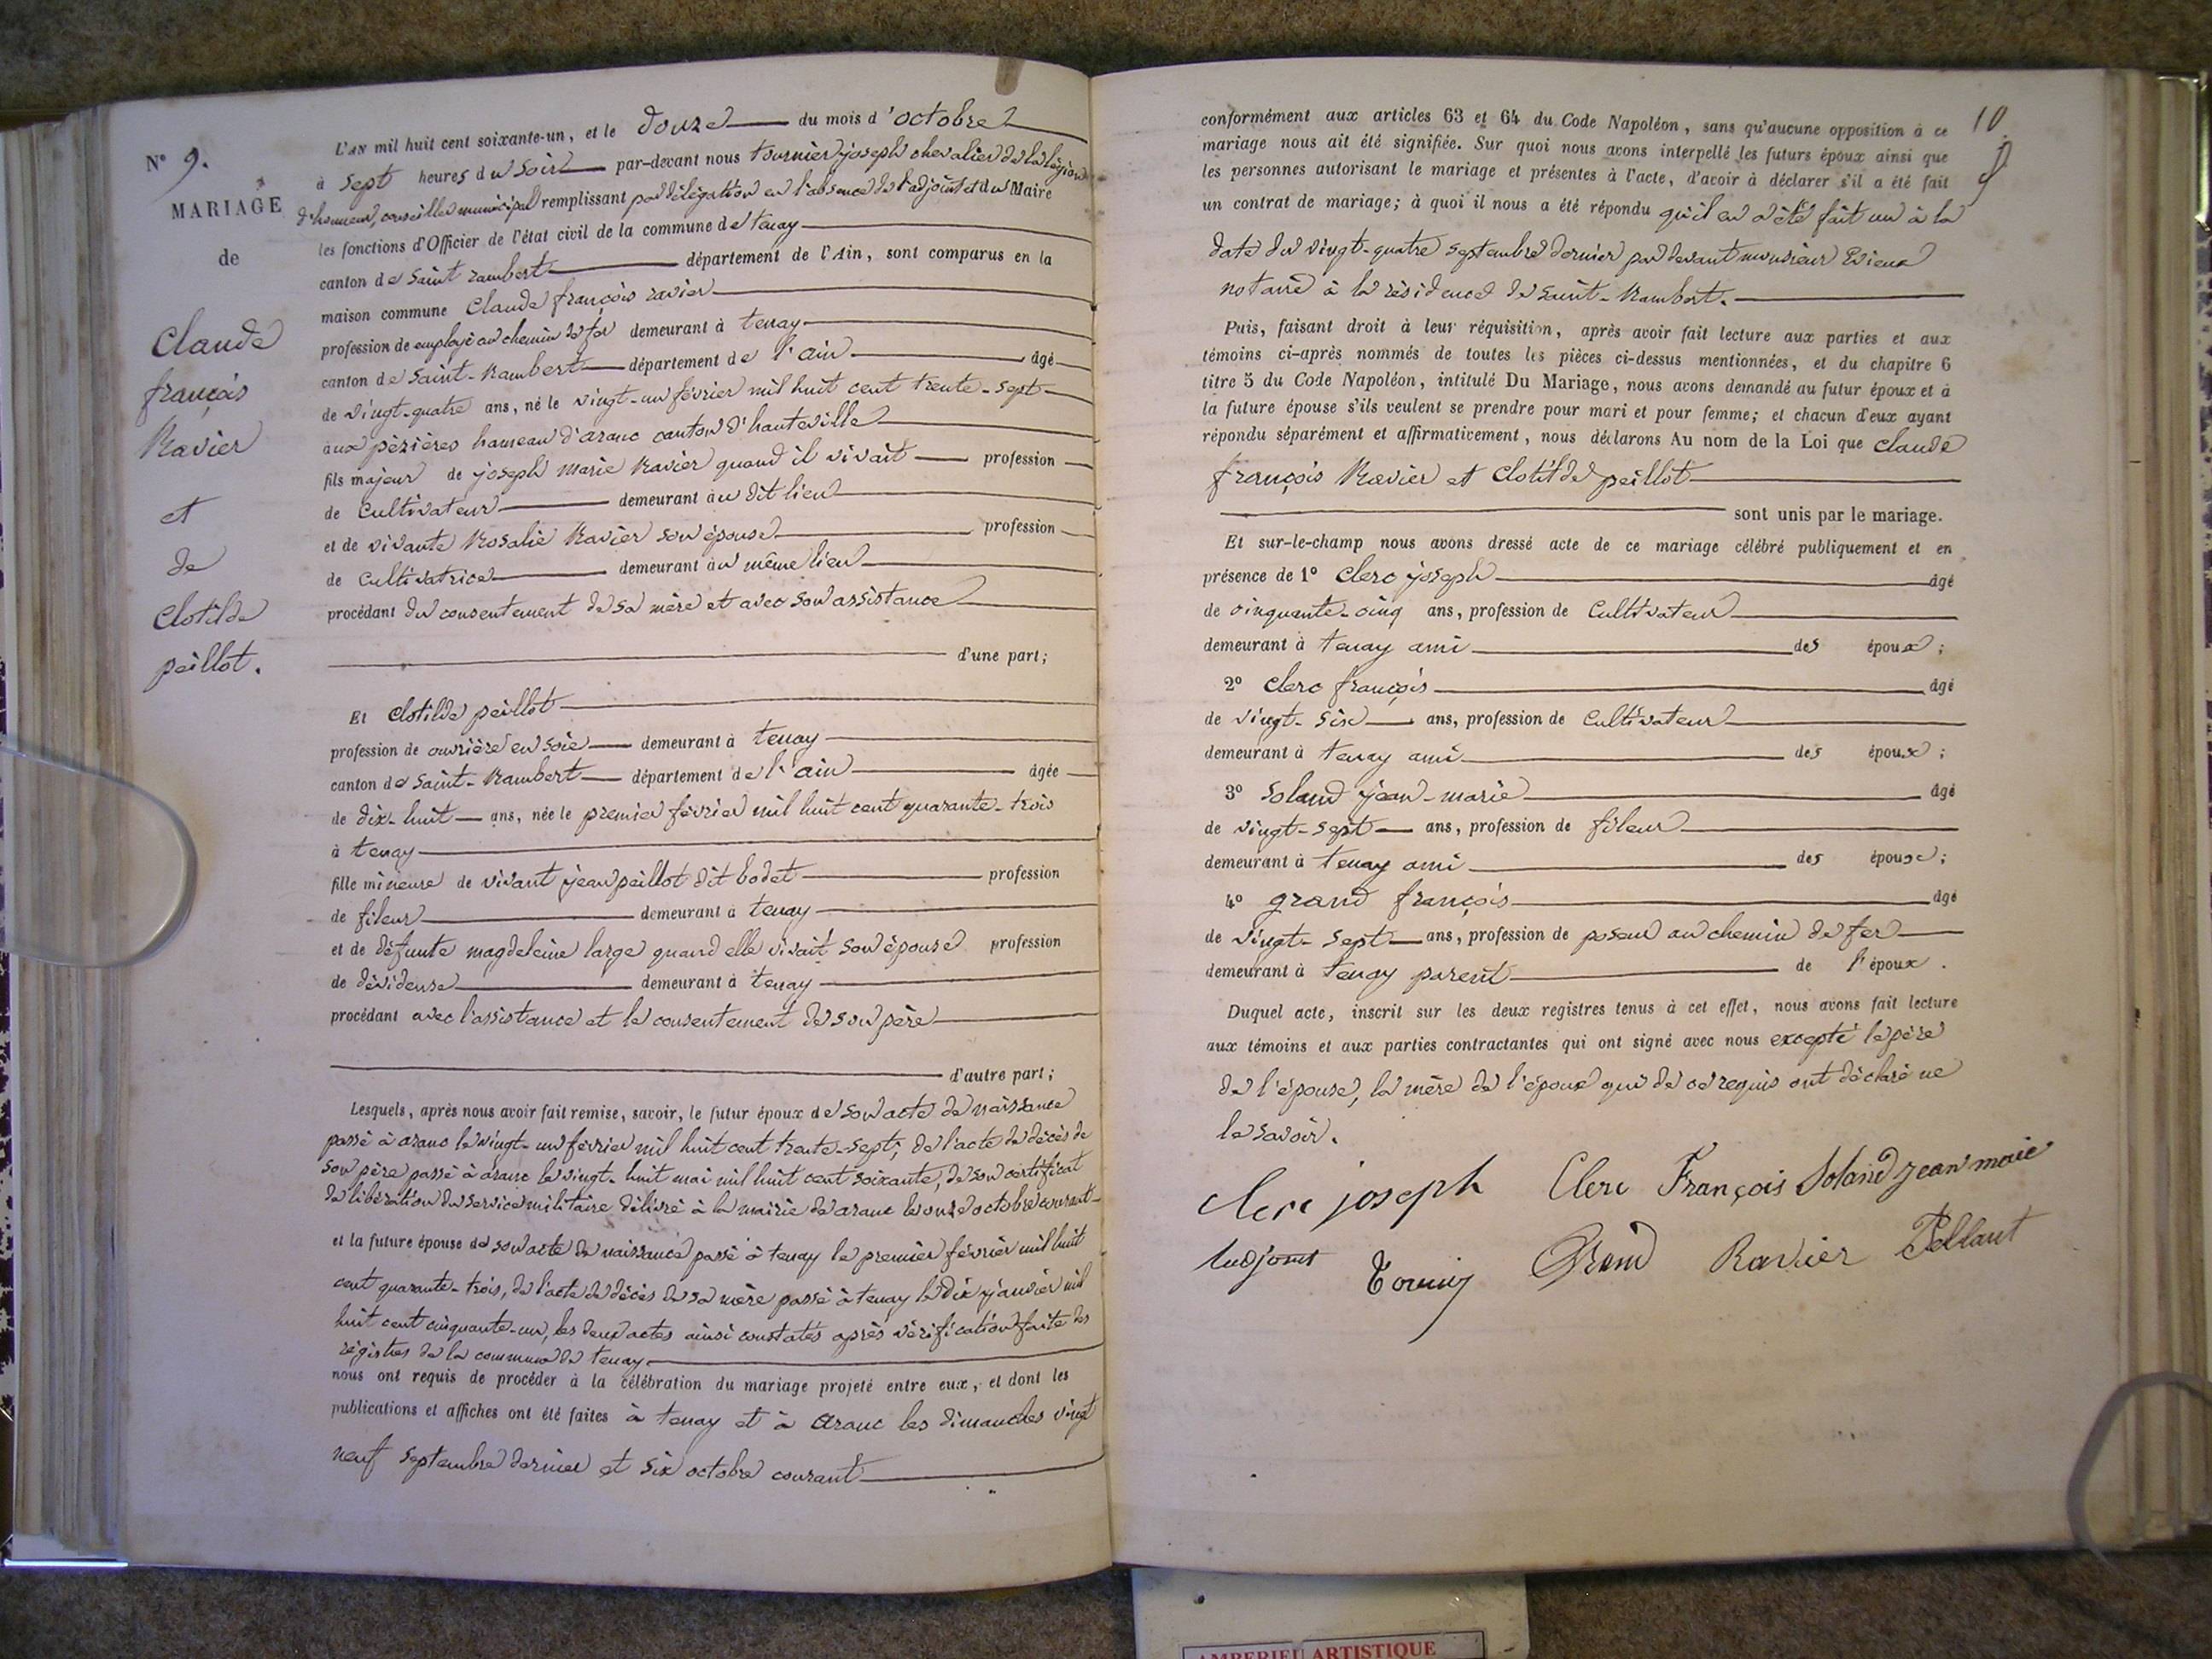 N° 9.
MARIAGE
de
Claude
françois
Ravier
et
de
Clotilde
peillot.
L'AN mil huit cent soixante-un, et le douze du mois d'octobre
à sept heures du soir par-devant nous tournier joseph chevalier de la légion
d'honneur, conseiller municipal remplissant par délégation en l'absence de l'adjoint et du Maire
les fonctions d'Officier de l'état civil de la commune de tenay
canton de Saint rambert département de l'Ain, sont comparus en la
maison commune Claude françois ravier
profession de employé au chemin de fer demeurant à tenay
canton de Saint-Rambert département de l'ain âgé
de vingt-quatre ans, né le vingt-un février mil huit cent trente-sept
aux pézières hameau d'aranc canton d'hauteville
fils majeur de joseph marie Ravier quand il vivait profession
de Cultivateur demeurant au dit lieu
et de vivante Rosalie Ravier son épouse profession
de Cultivatrice demeurant au même lieu
procédant du consentement de sa mère et avec son assistance
d'une part;
Et Clotilde peillot
profession de ouvrière en soie demeurant à tenay
canton de Saint-Rambert département de l'ain âgée
de dix-huit ans, née le premier février mil huit cent quarante-trois
à tenay
fille mineure de vivant jean peillot dit bodet profession
de fileur demeurant à tenay
et de défunte magdeleine large quand elle vivait son épouse profession
de dévideuse demeurant à tenay
procédant avec l'assistance et le consentement de son père
d'autre part;
Lesquels, après nous avoir fait remise, savoir, le futur époux de son acte de naissance
passé à aranc le vingt-un février mil huit cent trente-sept, de l'acte de décès de
son père passé à aranc le vingt-huit mai mil huit cent soixante, de son certificat
de libération du service militaire délivré à la mairie de aranc le onze octobre courant
et la future épouse de son acte de naissance passé à tenay le premier février mil huit
cent quarante-trois, de l'acte de décès de sa mère passé à tenay le dix janvier mil
huit cent cinquante-un, les deux actes ainsi constatés après vérification faite des
régistres de la commune de tenay.
nous ont requis de procéder à la célébration du mariage projeté entre eux, et dont les
publications et affiches ont été faites à tenay et à aranc les dimanches vingt
neuf septembre dernier et six octobre courant
10
conformément aux articles 63 et 64 du Code Napoléon, sans qu'aucune opposition à ce
mariage nous ait été signifiée. Sur quoi nous avons interpellé les futurs époux ainsi que
les personnes autorisant le mariage et présentes à l'acte, d'avoir à déclarer s'il a été fait
un contrat de mariage; à quoi il nous a été répondu qu'il en a été fait un à la
date du vingt-quatre septembre dernier par devant monsieur
notaire à la résidence de saint-Rambert.
Puis, faisant droit à leur réquisition, après avoir fait lecture aux parties et aux
témoins ci-après nommés de toutes les pièces ci-dessus mentionnées, et du chapitre 6
titre 5 du Code Napoléon, intitulé Du Mariage, nous avons demandé au futur époux et à
la future épouse s'ils veulent se prendre pour mari et pour femme; et chacun d'eux ayant
répondu séparément et affirmativement, nous déclarons Au nom de la Loi que Claude
françois Ravier et Clotilde peillot
sont unis par le mariage.
Et sur-le-champ nous avons dressé acte de ce mariage célébré publiquement et en
présence de 1° Clerc joseph âgé
de cinquante-cinq ans, profession de Cultivateur
demeurant à tenay ami des époux;
2° Clerc françois âgé
de vingt-six ans, profession de Cultivateur
demeurant à tenay ami des époux;
3° Soland jean-marie âgé
de vingt-sept ans, profession de fileur
demeurant à tenay ami des époux;
4° grand françois âgé
de vingt-sept ans, profession de poseur au chemin de fer
demeurant à tenay parent de l'époux.
Duquel acte, inscrit sur les deux registres tenus à cet effet, nous avons fait lecture
aux témoins et aux parties contractantes qui ont signé avec nous excepté le père
de l'épouse, la mère de l'époux qui de ce requis ont déclaré ne
le savoir.
Clerc joseph Clerc François Soland jean marie
Grand Ravier Pellaut
AMBERIEU ARTISTIQUE